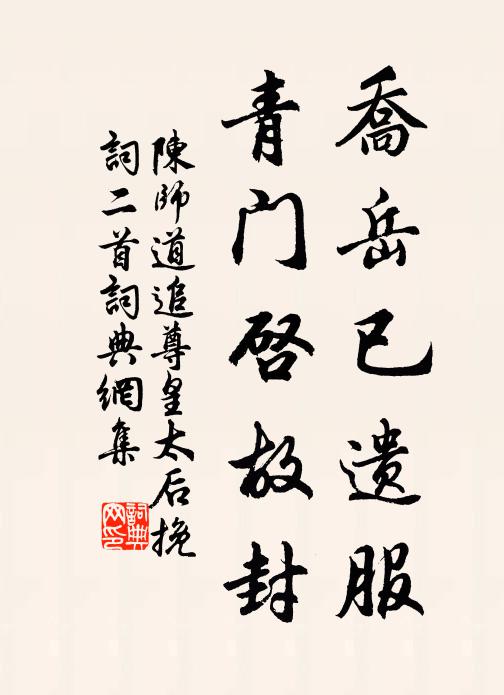 喬岳已遗服
青门啓故封
陳師道追尊皇太后挽
詞二首詞典網集
詞典网印